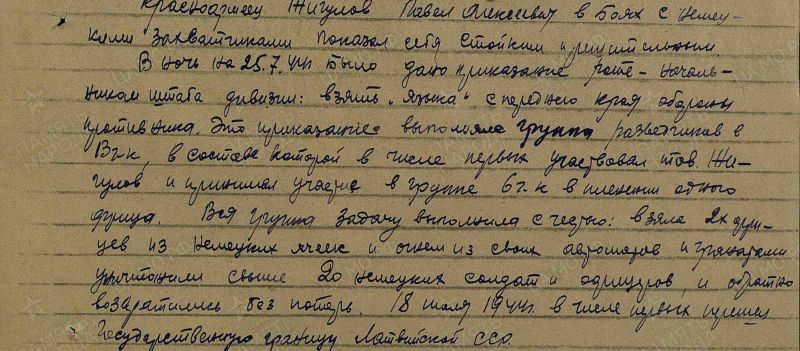 Красноармеец Жигулов Павел Алексеевич в боях с немец-
кими захватчиками показал себя стойким и решительным.
В ночь на 25.7.44г. было дано приказание роте - началь-
ником штаба дивизии: взять „языка" с переднего края обороны
противника. Это приказание выполняла группа разведчиков в
13 ч-к, в составе которой в числе первых участвовал тов. Жи-
гулов и принимал участие в группе 6 ч-к в пленении одного
фрица. Вся группа задачу выполнила с честью: взяла 2х фри-
цев из немецких ячеек и огнем из своих автоматов и гранатами
уничтожили свыше 20 немецких солдат и офицеров, и обратно
возвратились без потерь. 18 июля 1944г. в числе первых перешел
Государственную границу Латвийской ССР.